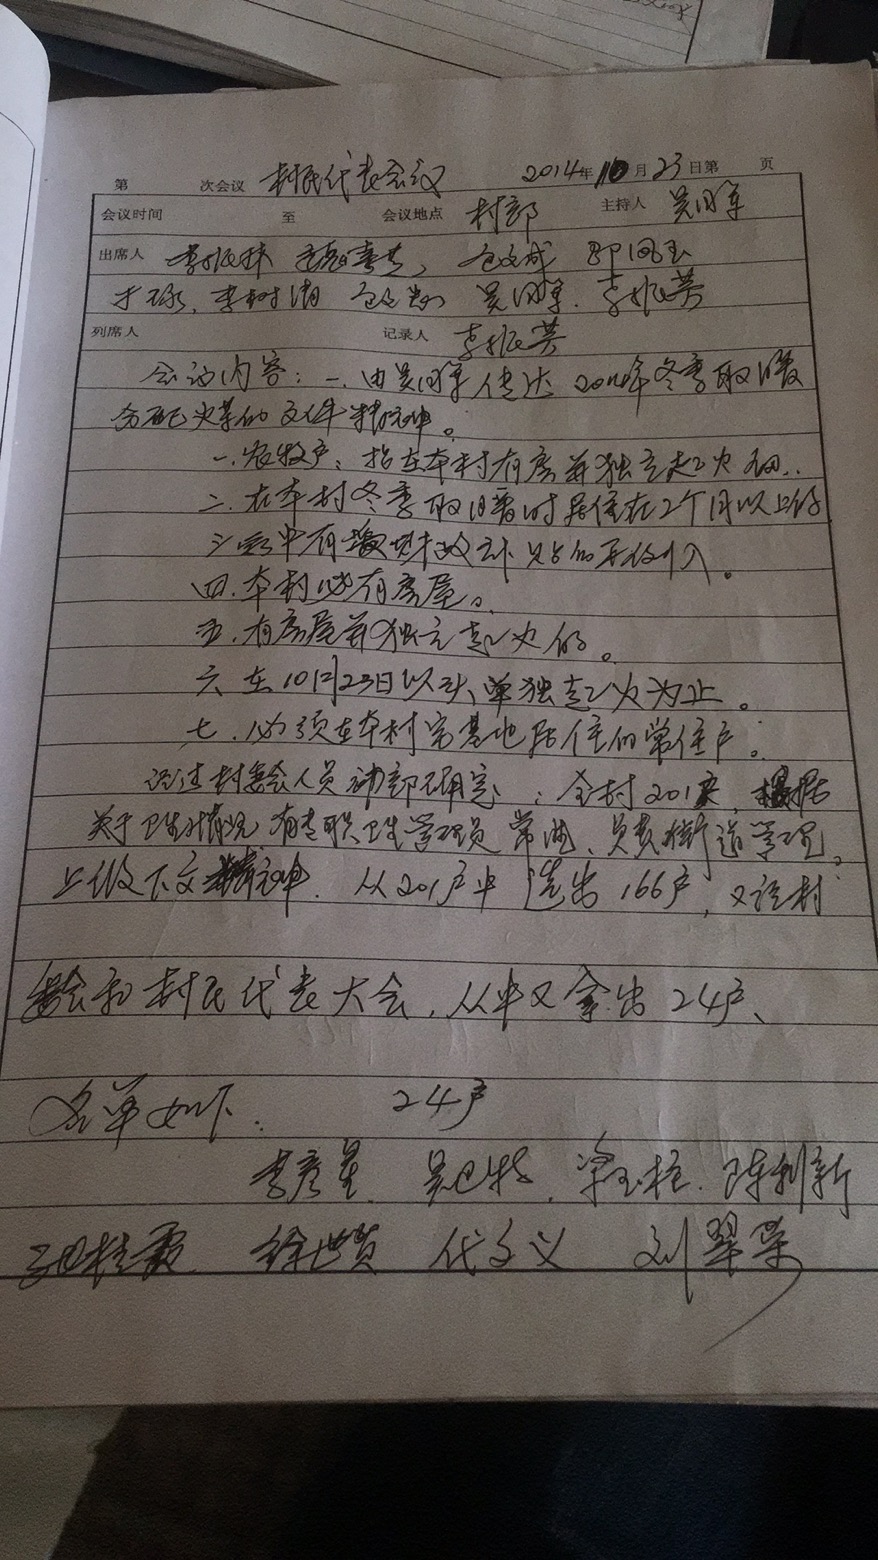 第 次会议 村民代表会议 2014年10月23日第 页
会议时间 至 会议地点 村部 主持人 吴国军
出席人 李振林 包文成 郭凤玉
李树清 吴国军. 李振芳
列席人 记录人 李振芳
会议内容:一.由吴国军传达2014年冬季取暖
分配火草的文件精神。
一.农牧户:指在本村有房并独立起火的..
二.在本村冬季取暖时居住在2个月以上的
三.家中有 财政 的 收入。
四.本村必有房屋。
五.有房屋并独立起火的。
六.在10月23日以头单独起火为止。
七.必须在本村宅基地居住的常住户。
经过村委会人员 部研究:全村201户,根据
关于卫生情况 有专职卫生管理员 负责街道管理。
上级下文精神. 从201户中选出166户,又经村
委会和村民代表大会.从中又拿出24户、
名单如下: 24户
李彦星. 吴巴特. 梁玉柱. 陈利新
徐世贵 代文义 刘翠荣